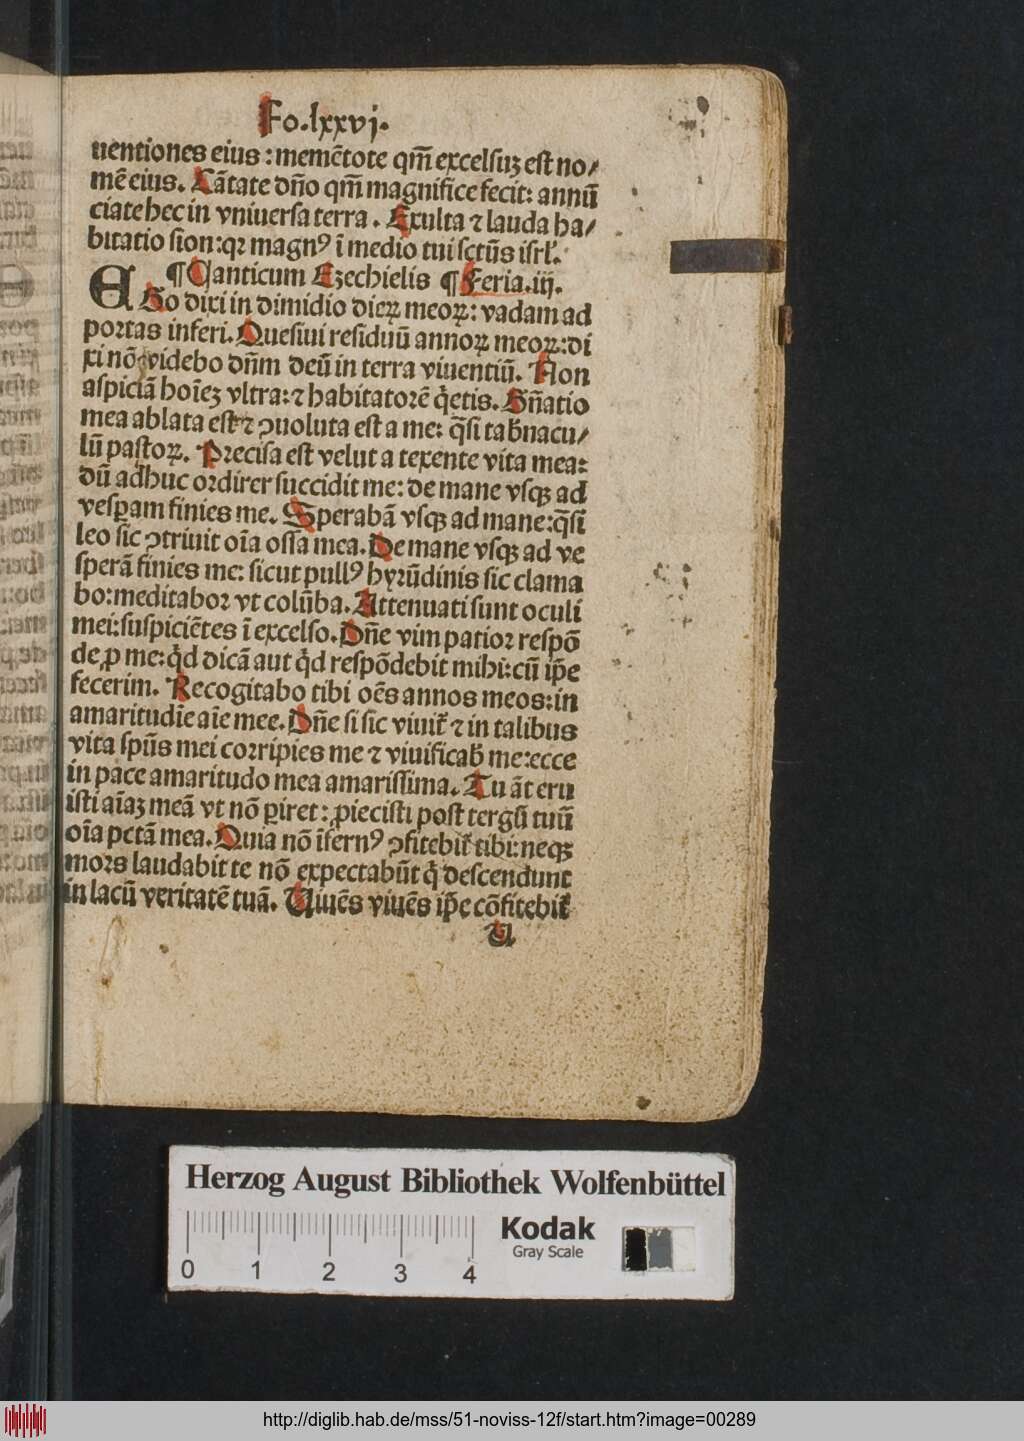 Fo.lxxvj.
uentiones eius : memētote qm̄ excelsuʒ est no⸗
mē eius. Cātate dn̄o qm̄ magnifice fecit: annū
ciate hec in vniuersa terra . Exulta ⁊ lauda ha⸗
bitatio sion:qꝛ magnꝰ ī medio tui sctūs isrl̓.
¶ Canticum Ezechielis ¶ Feria.iij.
EGo dixi in dimidio dieꝝ meoꝝ: vadam ad
poꝛtas inferi. Quesiui residuū annoꝝ meoꝝ:di
xi nō videbo dn̄m deū in terra viuentiū. Non
aspiciā hoīeʒ vltra:⁊ habitatoꝛē q̇etis. Gn̄atio
mea ablata est ⁊ ꝯuoluta est a me: q̄si tab̄nacu⸗
lū pastoꝝ. Pꝛecisa est velut a texente vita mea:
dū adhuc oꝛdirer succidit me: de mane vsqꝫ ad
vesꝑam finies me. Sperabā vsqꝫ ad mane:q̄si
leo sic ꝯtriuit oīa ossa mea. De mane vsqꝫ ad ve
sperā finies me: sicut pullꝰ hyꝛūdinis sic clama
bo:meditaboꝛ vt colūba. Attenuati sunt oculi
mei:suspiciētes ī excelso. Dn̄e vim patioꝛ respō
de ꝓ me: q̇d dicā aut q̇d respōdebit mihi:cū ip̄e
fecerim. Recogitabo tibi oēs annos meos:in
amaritudīe aīe mee. Dn̄e si sic viuit̉ ⁊ in talibus
vita spūs mei coꝛripies me ⁊ viuificab̄ me:ecce
in pace amaritudo mea amarissima. Tu āt eru
isti aīaʒ meā vt nō ꝑiret : ꝓiecisti post tergū tuū
oīa pctā mea. Quia nō īfernꝰ ꝯfitebit̉ tibi:neqꝫ
moꝛs laudabit te nō expectabūt q̇ descendunt
in lacū veritatē tuā. Uiuēs viuēs ip̄e cōfitebit̉
U
Herzog August Bibliothek Wolfenbüttel
Kodak
Gray Scale
0 1 2 3 4
http://diglib.hab.de/mss/51-noviss-12f/start.htm?image=00289